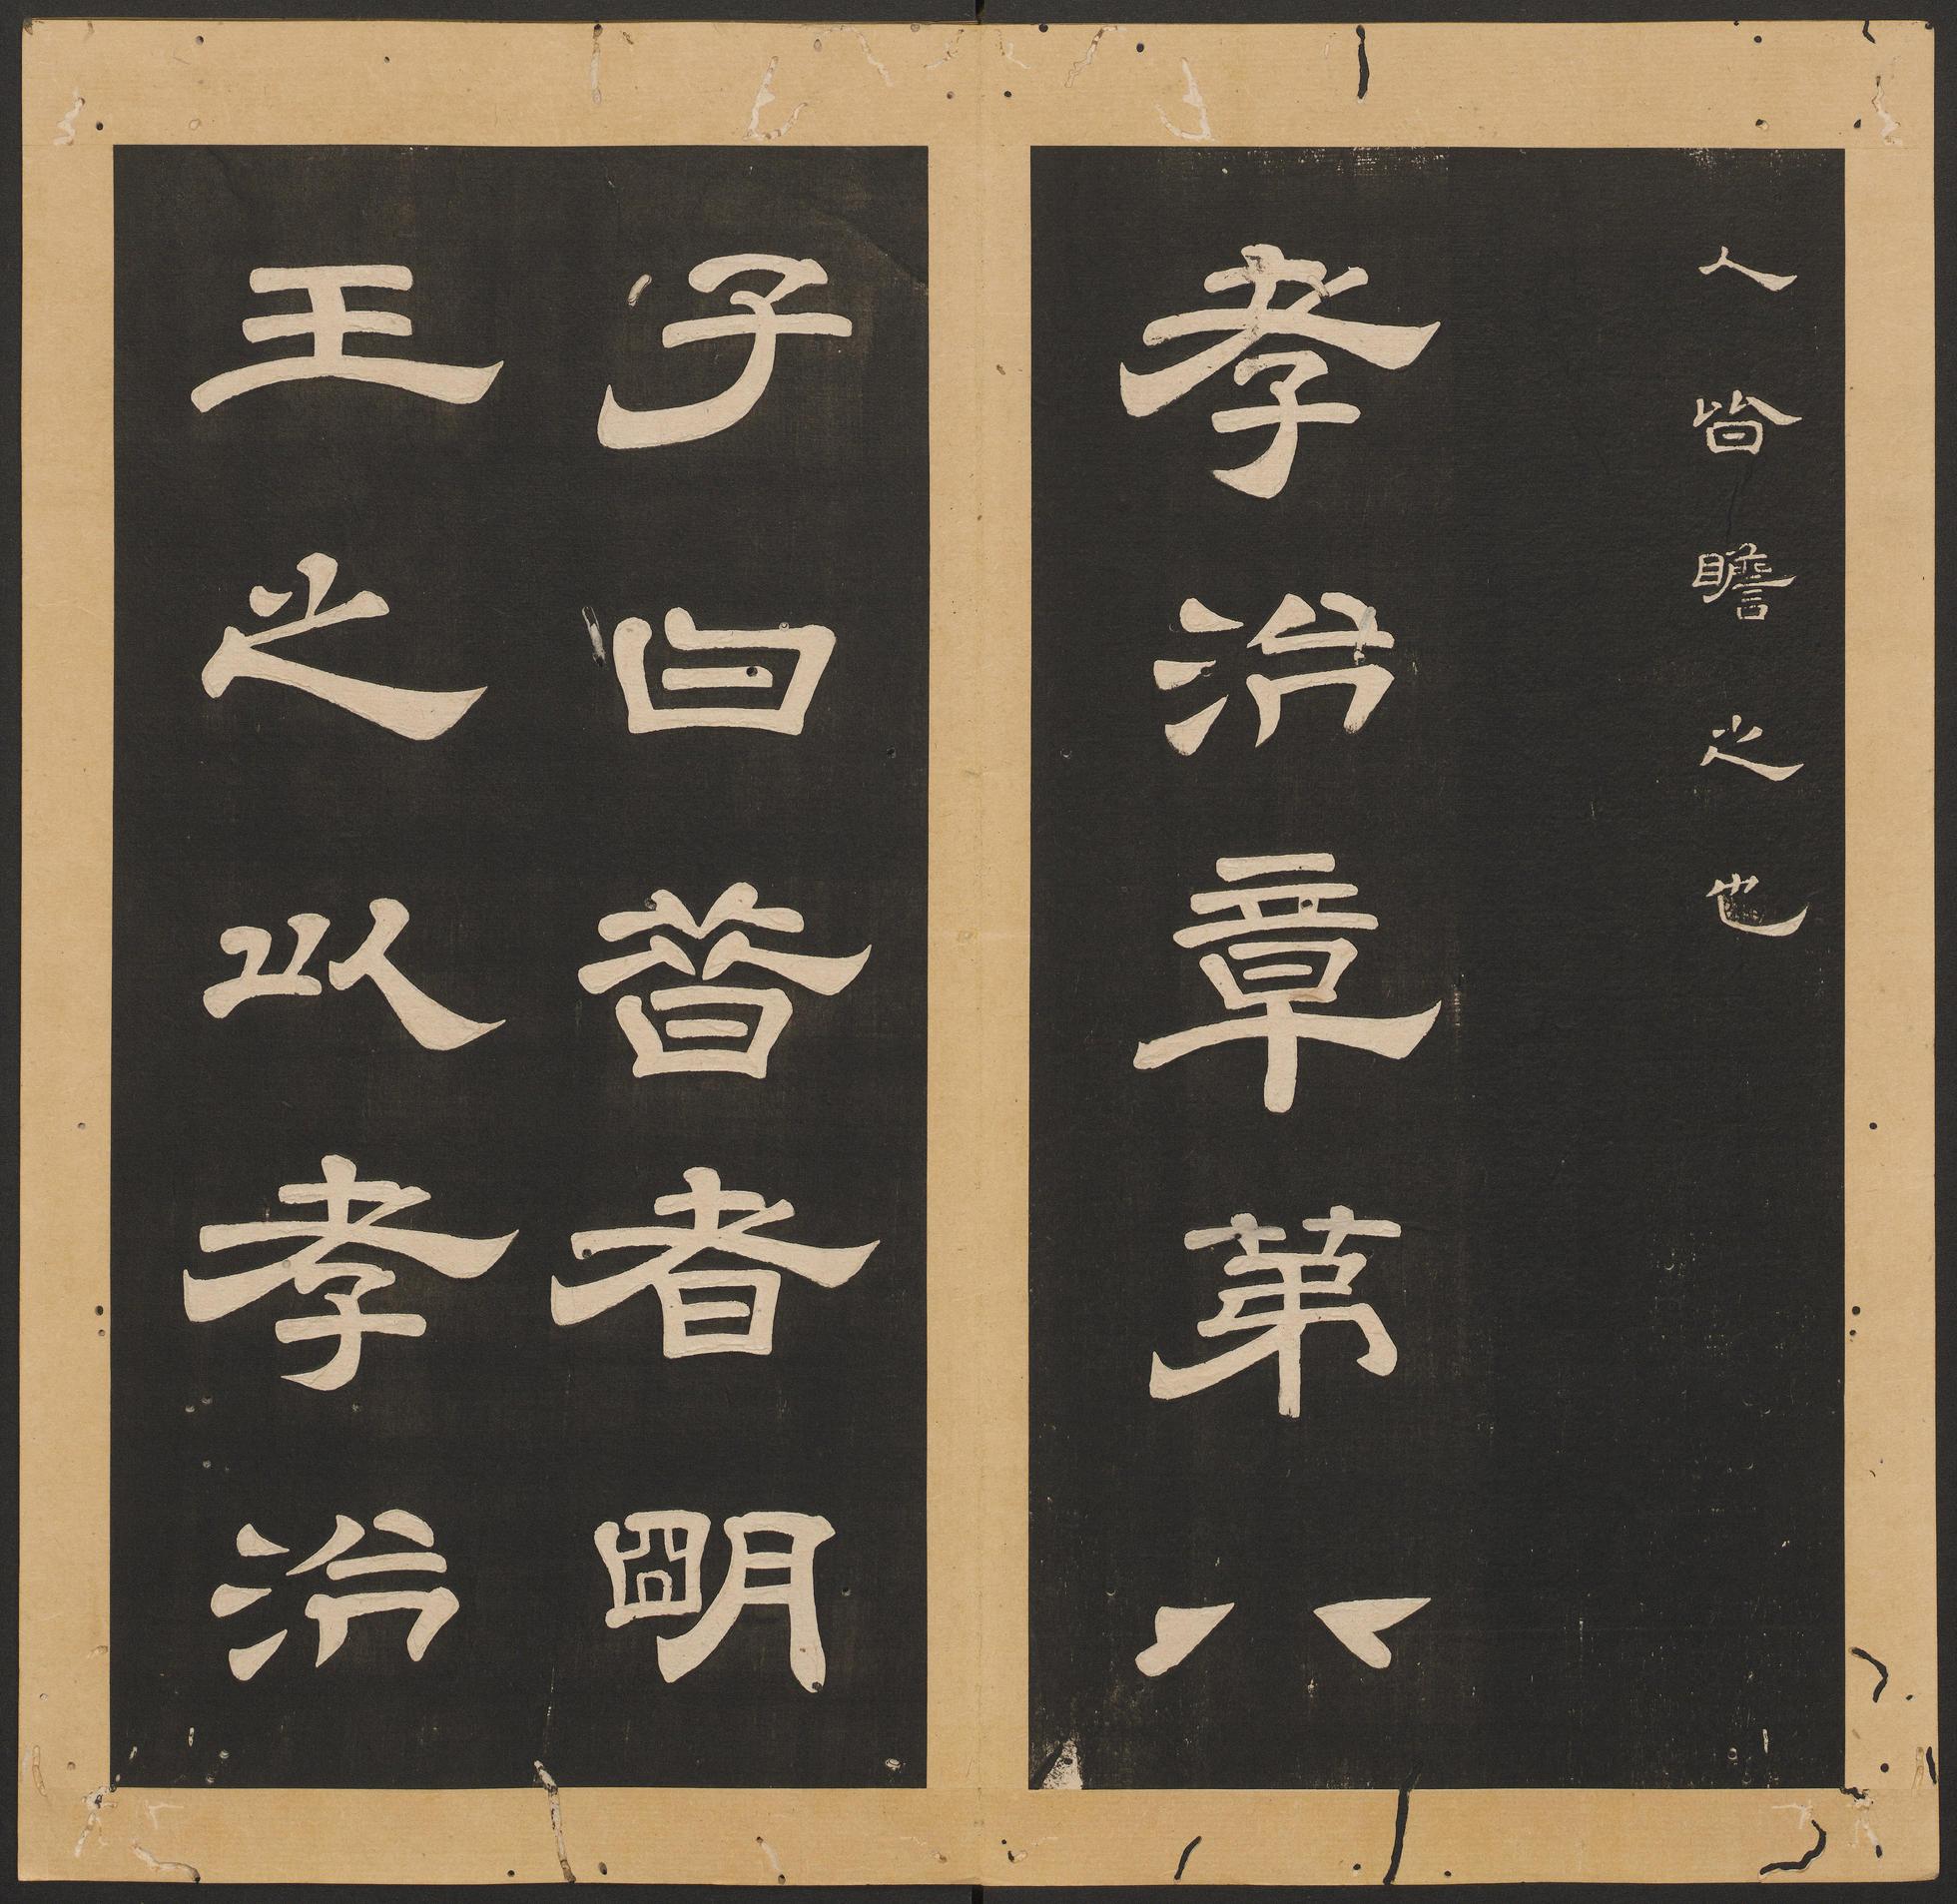 人皆瞻之也
孝治章第八
子曰昔者明
王之以孝治